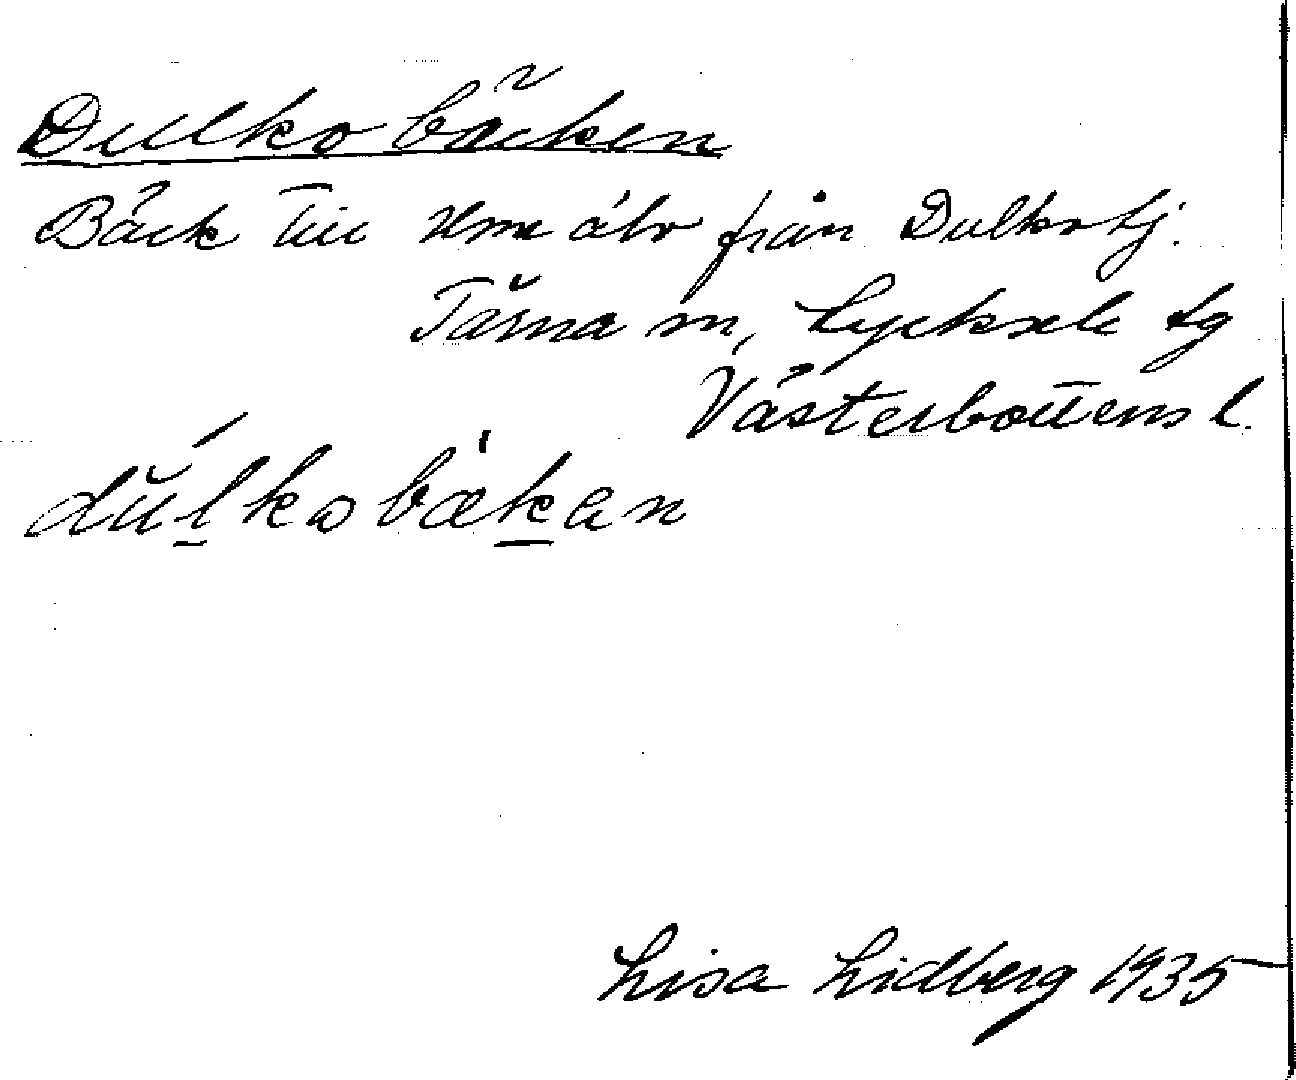 Dulkobäcken
Bäck till Ume älv från Dulkotj.
Tärna sn, Lycksele tg
Västerbottens l.
dŭlkobækan
Lisa Lidberg 1935